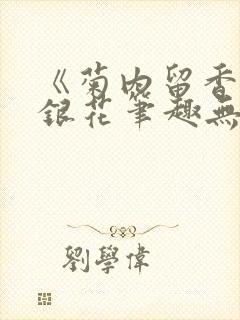 《菊內留香
銀花筆趣無
劉學偉